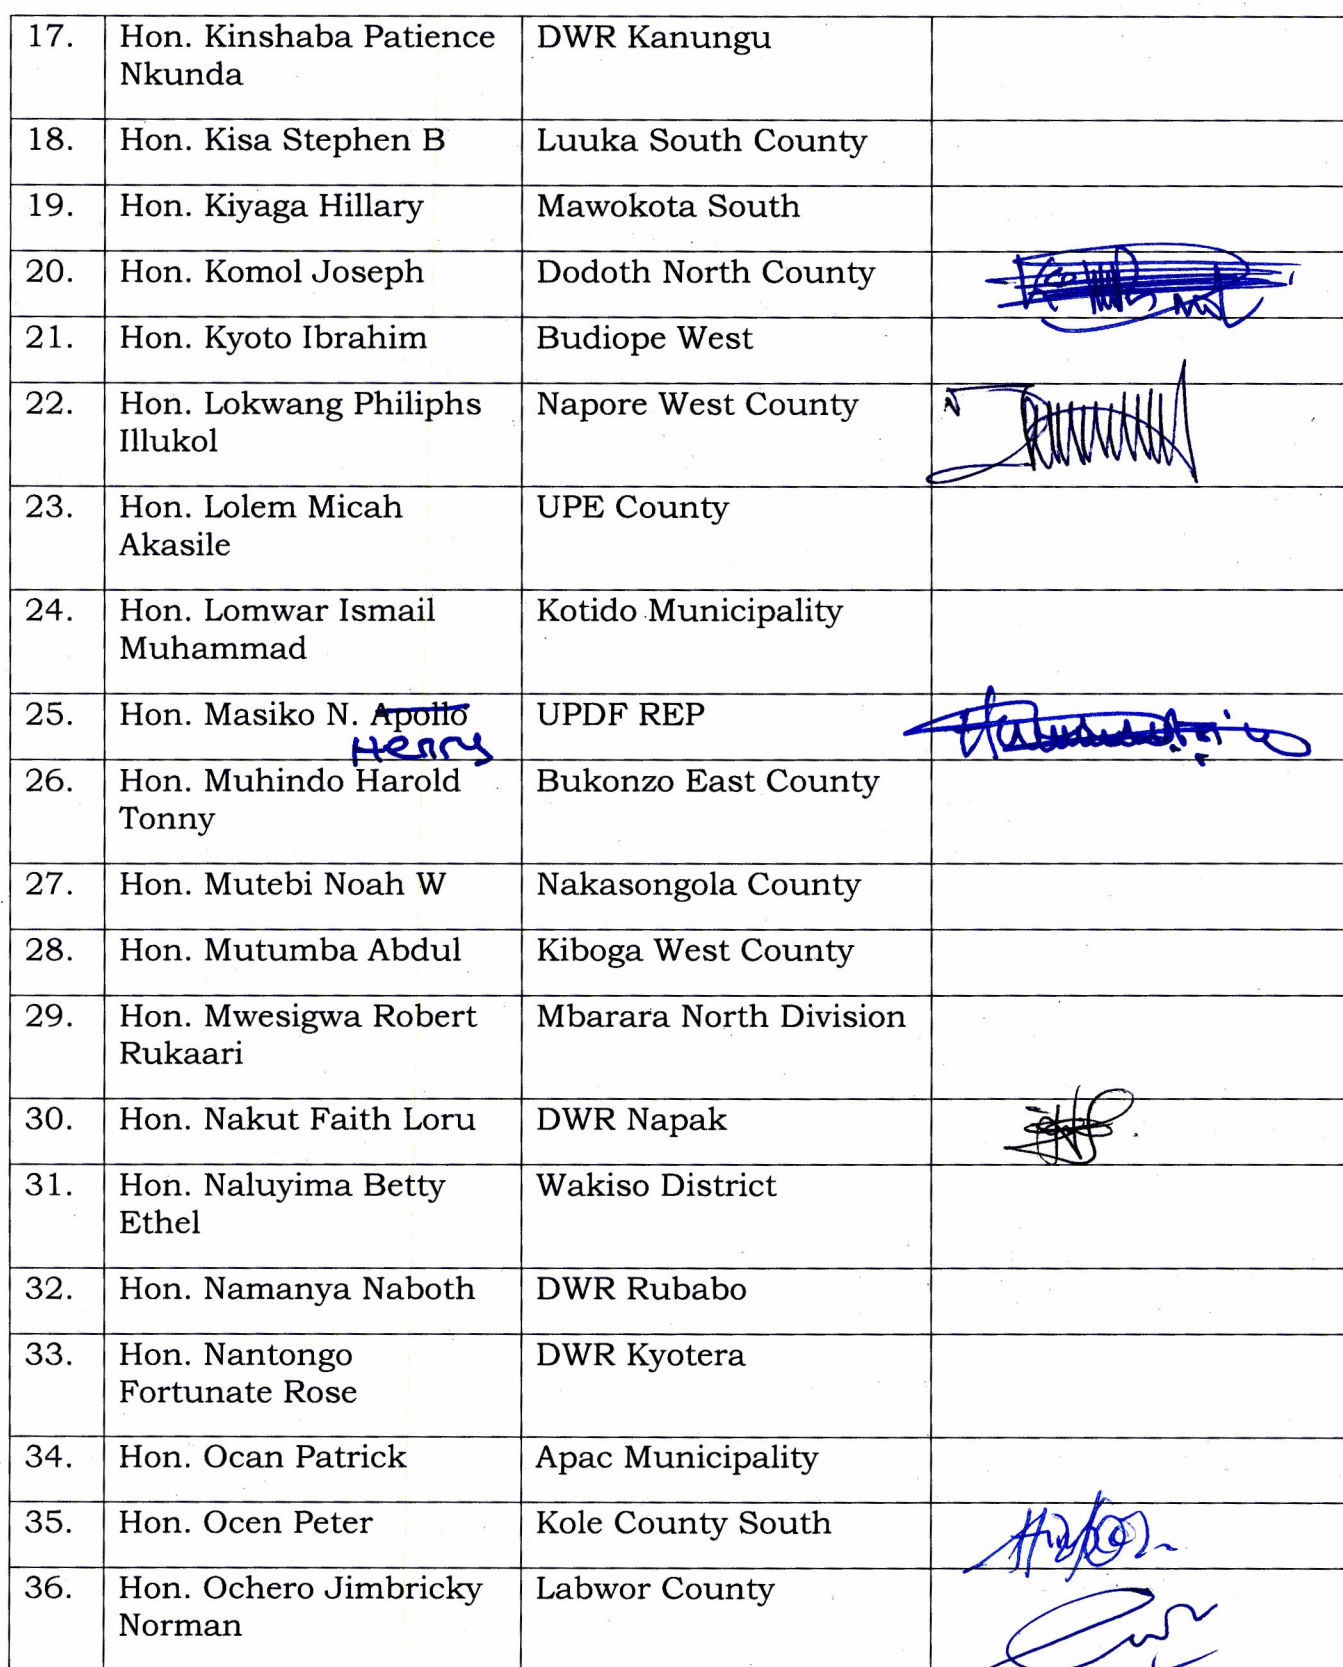 17. Hon. Kinshaba Patience DWR Kanungu
Nkunda
18. Hon. Kisa Stephen B Luuka South County
19. Hon. Kiyaga Hillary Mawokota South
20. Hon. Komol Joseph Dodoth North County
21. Hon. Kyoto Ibrahim Budiope West
22. Hon. Lokwang Philiphs Napore West County
Illukol
23. Hon. Lolem Micah UPE County
Akasile
24. Hon. Lomwar Ismail Kotido Municipality
Muhammad
25. Hon. Masiko N. Apollo UPDF REP
Henry
26. Hon. Muhindo Harold Bukonzo East County
Tonny
27. Hon. Mutebi Noah W Nakasongola County
28. Hon. Mutumba Abdul Kiboga West County
29. Hon. Mwesigwa Robert Mbarara North Division
Rukaari
30. Hon. Nakut Faith Loru DWR Napak
31. Hon. Naluyima Betty Wakiso District
Ethel
32. Hon. Namanya Naboth DWR Rubabo
33. Hon. Nantongo DWR Kyotera
Fortunate Rose
34. Hon. Ocan Patrick Apac Municipality
35. Hon. Ocen Peter Kole County South
36. Hon. Ochero Jimbricky Labwor County
Norman